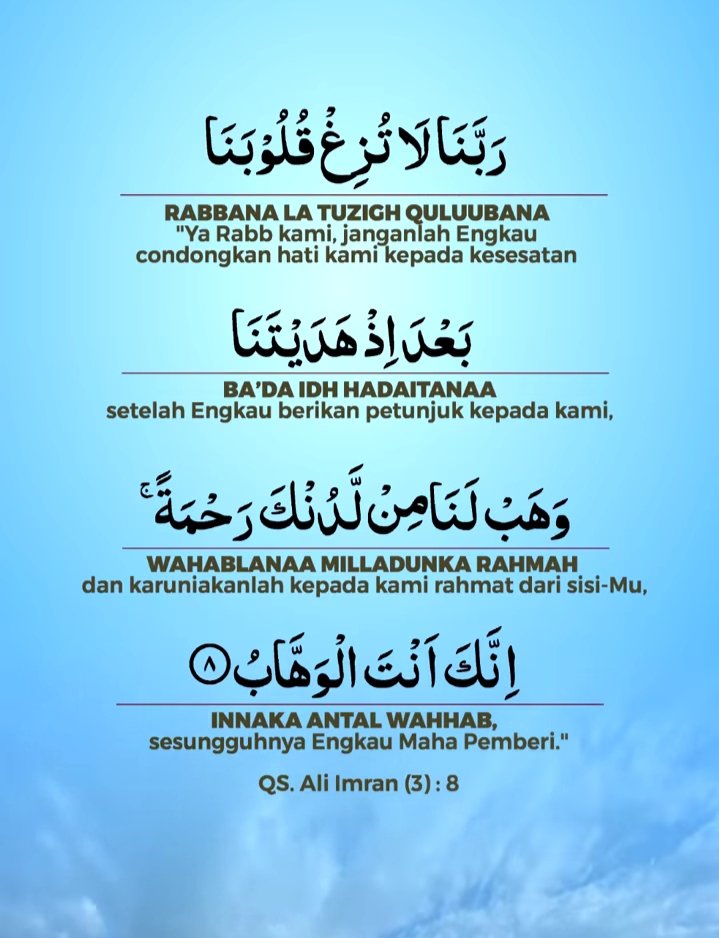 رَبَّنَا لَا تُزِغْ قُلُوْبَنَا
RABBANA LA TUZIGH QULUUBANA
"Ya Rabb kami, janganlah Engkau
condongkan hati kami kepada kesesatan
بَعْدَ اِذْ هَدَيْتَنَا
BA’DA IDH HADAITANAA
setelah Engkau berikan petunjuk kepada kami,
وَهَبْ لَنَا مِنْ لَّدُنْكَ رَحْمَةً ۚ
WAHABLANAA MILLADUNKA RAHMAH
dan karuniakanlah kepada kami rahmat dari sisi-Mu,
اِنَّكَ اَنْتَ الْوَهَّابُ ٨
INNAKA ANTAL WAHHAB,
sesungguhnya Engkau Maha Pemberi."
QS. Ali Imran (3) : 8